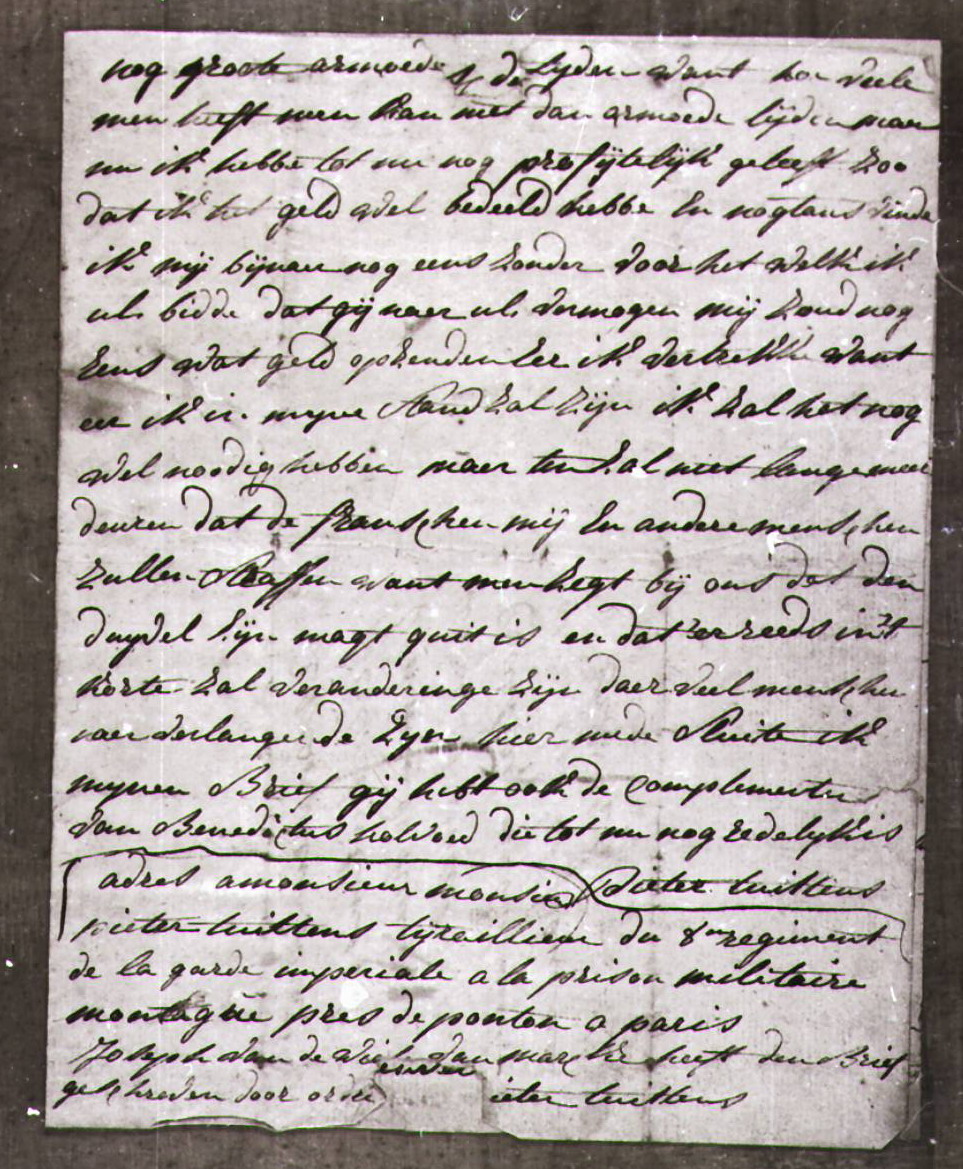 nog groote armoede te Lyden want hoe veele
men heeft men kan niet dan armoede lijden maer
nu ik hebbe tot nu nog profijtelijk geleeft zoo
dat ik het geld wel bedeeld hebbe En nogtans vinde
ik mij bijnaer nog eens zonder voor het welk ik
ul. bidde dat gij naer ul. vermogen mij zoud nog
Eens wat geld opzenden Eer ik vertrekke want
eer ik in myne stand zal zijn ik zal het nog
wel noodig hebben maer ten zal niet lange meer
deuren dat de franschen mij En andere menschen
zullen straffen want men zegt bij ons dat den
duyvel zijn magt quit is en dat er reeds in't
korte zal veranderinge zijn daer veel menschen
naer verlangende zyn hier mede sluite ik
mynen Brief gij hebt ook de complimenten
van Benedictus holvoed die tot nu nog redelyk is
adres amonsieur monsieur pieter tuittens
pieter tuittens tyraillieur du 8me regiment
de la garde imperiale a la prison militaire
montegue pres de ponton a paris
Joseph van de van marcke heeft den Brief
geschreven door order ieter tuittens